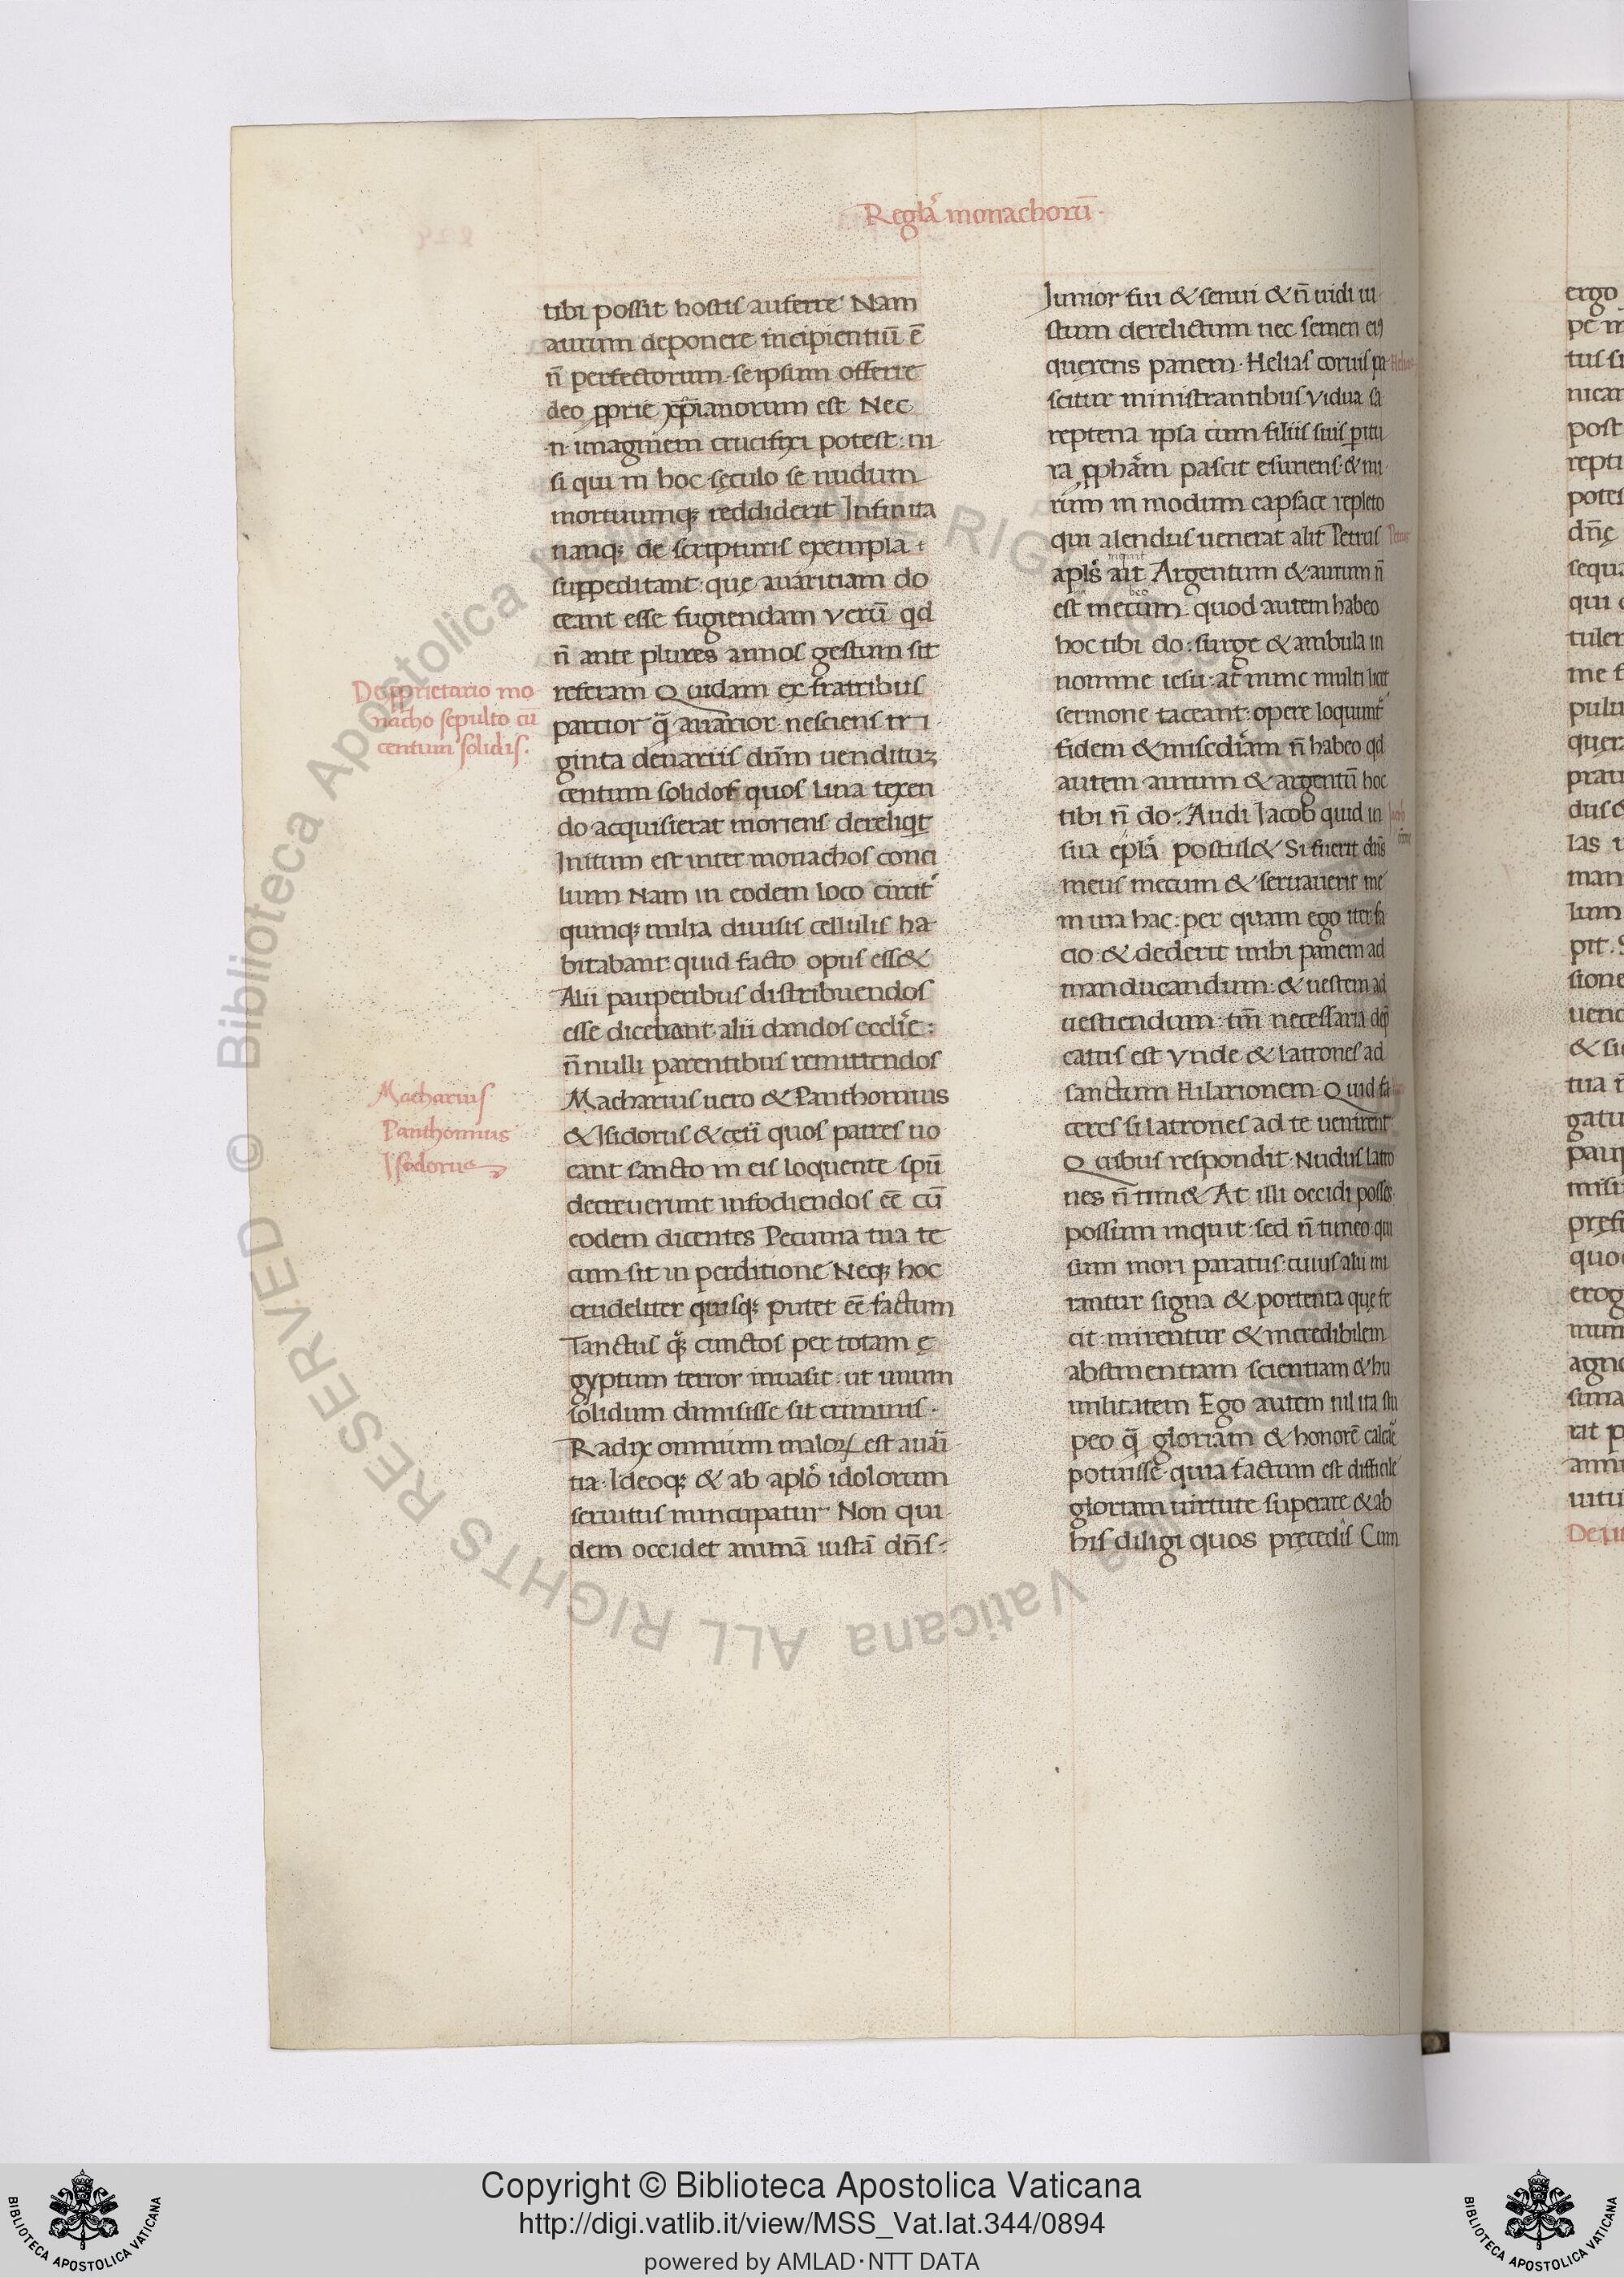 Reglᷓa monachorū·
tibi possit hostis auferre Nam
aurum deponere incipientiū ē
n̄ perfectorum· seipsum offerre
deo ꝓprie xp̄ianorum est Nec
·n· imaginem crucifixi potest: ni
si qui in hoc sęculo se nudum
mortuumq; reddiderit Infinita
nanq; de scripturis exempla ·
suppeditant· quę auaritiam do
ceant esse fugiendam Verū qd
n̄ ante plures annos gestum sit
referam Quidam ex fratribus
parcior q̄ auarior· nesciens tri
ginta denariis dn̄m uendituz
centum solidos quos lina texen
do acquisierat moriens dereliqt
Initum est inter monachos conci
lium Nam in eodem loco circit᷑
quinq; milia diuisis cellulis ha
bitabant· quid facto opus ess&
Alii pauperibus distribuendos
esse dicebant· alii dandos eccl̄ie:
n̄nulli parentibus remittendos
Macharius uero & Panthomius
& Isidorus & cęti quos patres uo
cant sancto in eis loquente spū
decreuerunt infodiendos eē cū
eodem dicentes Pecunia tua te
cum sit in perditione Neq; hoc
crudeliter quisq; putet eē factum
Tanctus q; cunctos per totam ę
gyptum terror inuasit· ut unum
solidum dimisisse sit criminis·
Radix omnium maloꝝ est auari
tia· Ideoq; & ab aplō idolorum
seruitus nuncupatur Non qui
dem occidet animā iustā dn̄s:
De ꝓprietario mo
nacho sepulto cū
centum solidis·
Macharius
Panthomius
Isodorus
Iunior fui & senui & n̄ uidi iu
stum derelictum nec semen ei9
querens panem· Helias coruis pa
scitur ministrantibus Vidua sa
reptena ipsa cum filiis suis pitu
ra ꝓphām pascit esuriens· & mi
rum in modum capsace repleto
qui alendus uenerat alit Petrus
inquit
apl's ait Argentum & aurum n̄
est mecum· quod autem habeo
hoc tibi do: surge & ambula in
nomine iesu· at nunc multi licet
sermone taceant: opere loquunt᷑
fidem & misediam n̄ habeo qd
autem aurum & argentū hoc
tibi n̄ do· Audi Iacob quid in
sua epl̄a postul& Si fuerit dn̄s
meus mecum & seruauerit me
in uia hac: per quam ego iter fa
cio· & dederit mihi panem ad
manducandum: & uestem ad
uestiendum· tm̄ necessaria dep̄
catus est Vnde & latrones ad
sanctum Hilarionem Quid fa
ceres si latrones ad te uenirent
Quibus respondit· Nudus latro
nes n̄ tim& At illi occidi posses·
possum inquit· sed n̄ timeo qui
sum mori paratus· cuius alii mi
rantur signa & portenta quę fe
cit: mirentur & incredibilem
abstinentiam scientiam & hu
militatem Ego autem nil ita stu
peo q̄ gloriam & honorē calcare
potuisse· quia factum est difficile
gloriam uirtute superare & ab
his diligi quos pręcedis Cum
Copyright © Biblioteca Apostolica Vaticana
http://digi.vatlib.it/view/MSS_Vat.lat.344/0894
powered by AMLAD·NTT DATA
© Biblioteca Apostolica Vaticana ALL RIGHTS RESERVED
BIBLIOTECA APOSTOLICA VATICANA
BIBLIOTECA APOSTOLICA VATICANA